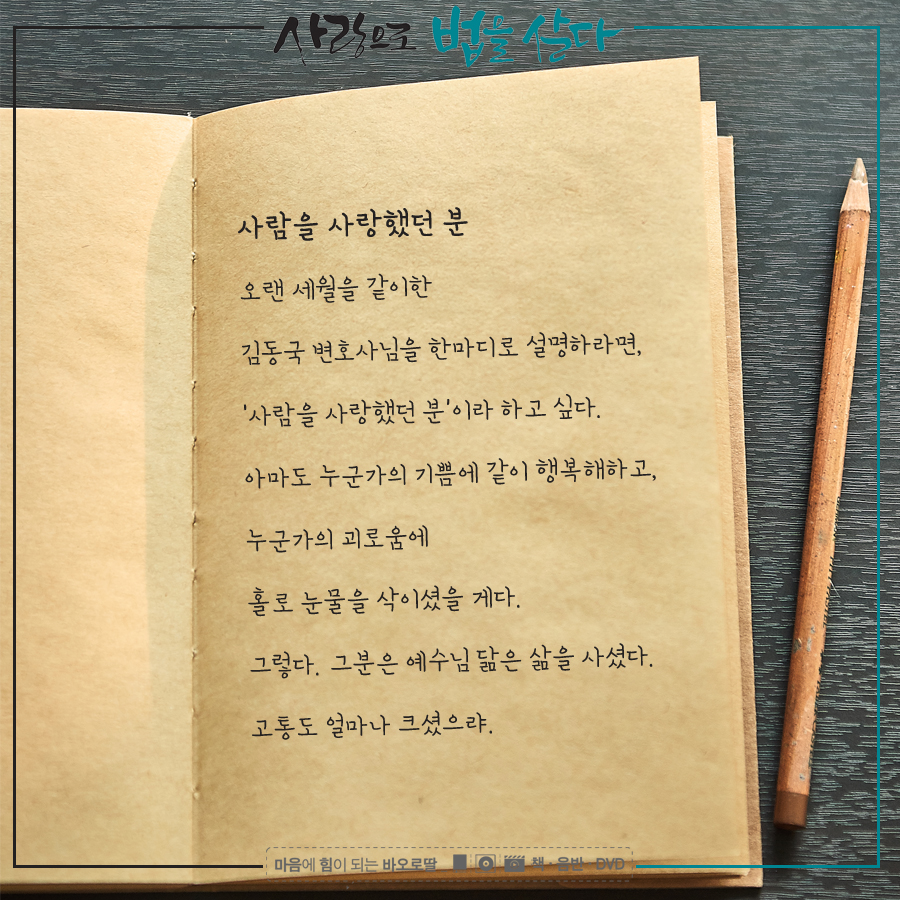 사랑으로 법을 살다
사람을 사랑했던 분
오랜 세월을 같이한
김동국 변호사님을 한마디로 설명하라면,
'사람을 사랑했던 분'이라 하고 싶다.
아마도 누군가의 기쁨에 같이 행복해하고,
누군가의 괴로움에
홀로 눈물을 삭이셨을 게다.
그렇다. 그분은 예수님 닮은 삶을 사셨다.
고통도 얼마나 크셨으랴.
마음에 힘이 되는 바오로딸 책·음반·DVD